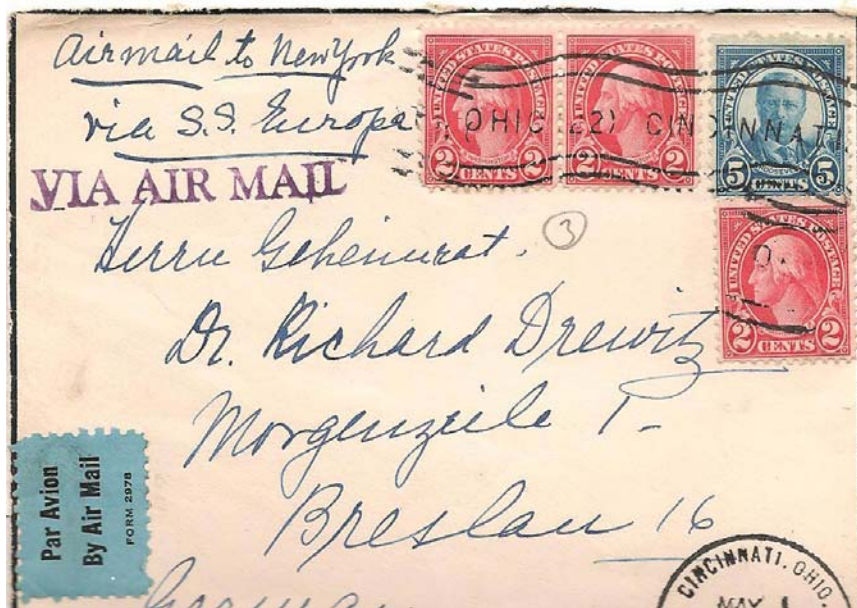 Airmail to New York
via S.S. Europa
VIA AIR MAIL
UNITED STATES POSTAGE
2 CENTS 2
UNITED STATES POSTAGE
2 CENTS 2
UNITED STATES POSTAGE
5 CENTS 5
OHIO (22) CINCINNAT
UNITED STATES POSTAGE
2 CENTS 2
3
Herrn Geheimrat.
Dr. Richard Drewitz
Morgenzeile
Breslau 16
Par Avion
By Air Mail
FORM 2978
CINCINNATI, OHIO
MAY 1